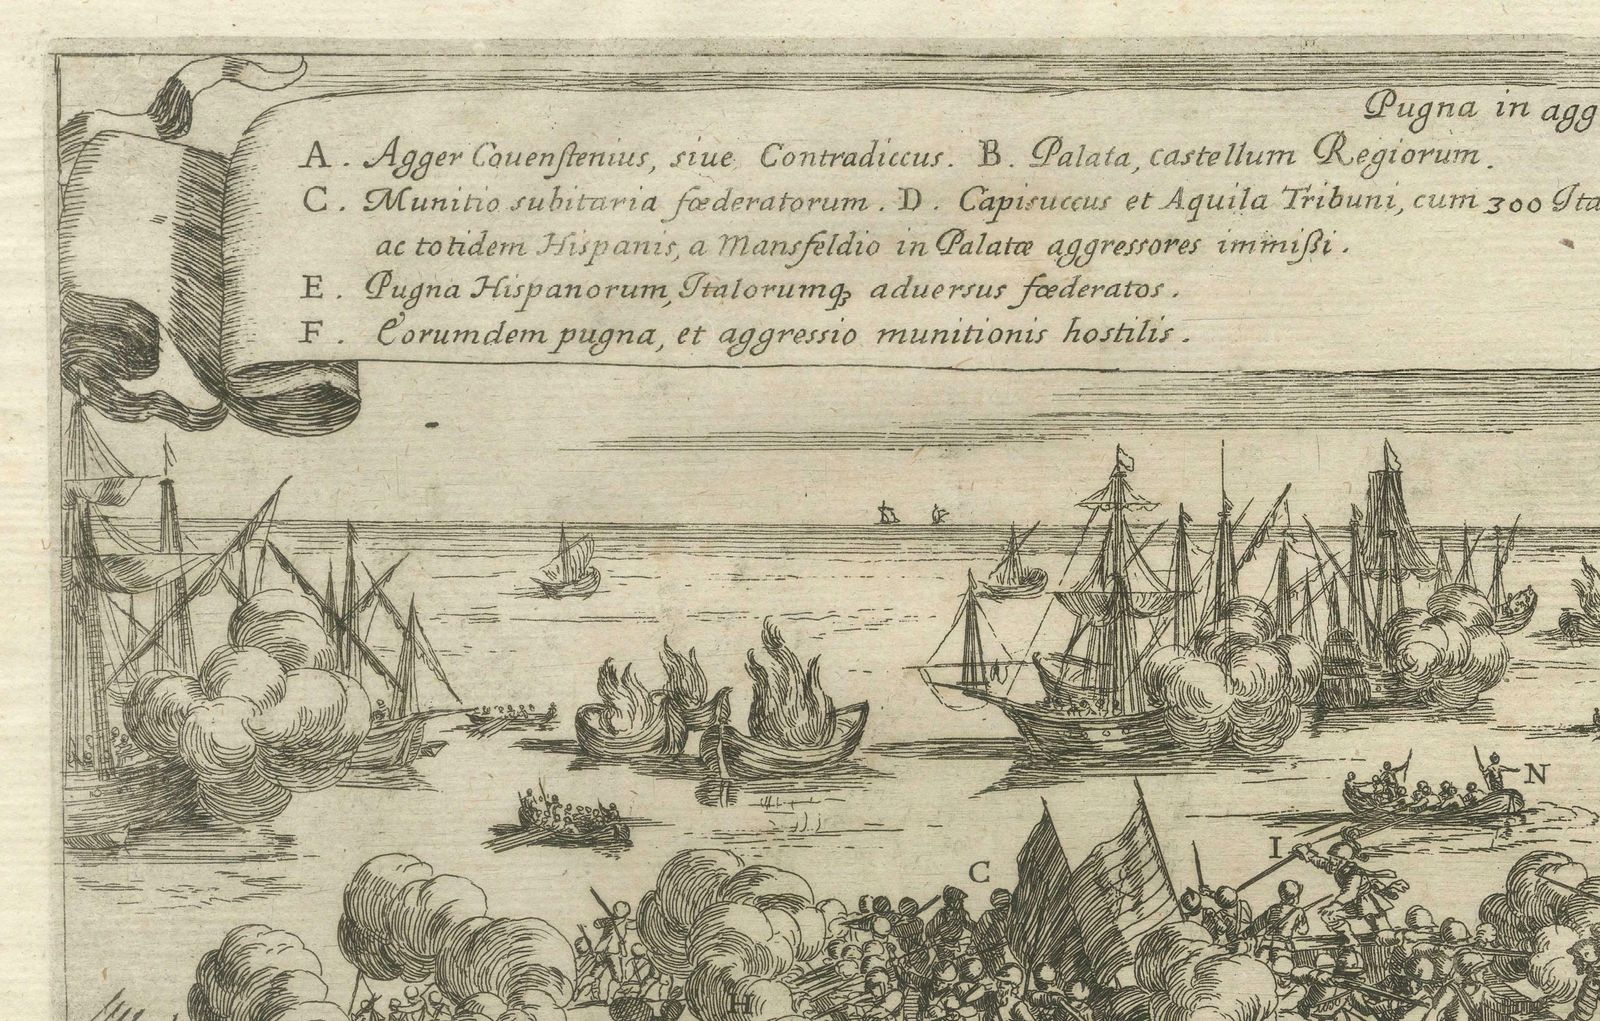 Pugna in agg
A. Agger Couenſtenius, siue Contradiccus. B. Palata, castellum Regiorum.
C. Munitio subitaria fœderatorum. D. Capisuccus et Aquila Tribuni, cum 300 Ita
ac totidem Hispanis, a Mansfeldio in Palatæ aggressores immißi.
E. Pugna Hispanorum, Italorumq; aduersus fœderatos.
F. Eorumdem pugna, et aggressio munitionis hostilis.
N
I
C
H